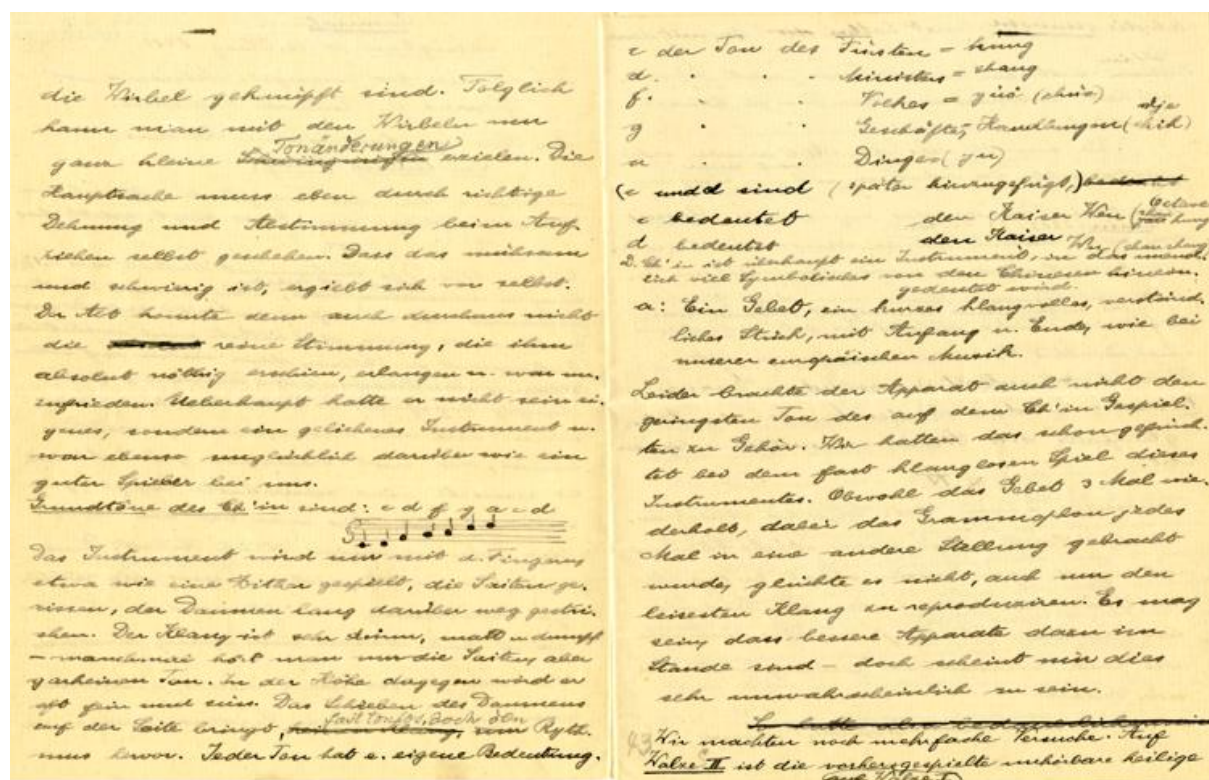 die Wirbel geknüpft sind. Folglich
kann man mit den Wirbeln nur
Tonänderungen
ganz kleine erzielen. Die
Hauptsache muss eben durch richtige
Dehnung und Abstimmung beim Auf-
ziehen selbst geschehen. Dass das mühsam
und schwierig ist, ergiebt sich von selbst.
Der Alte konnte denn auch durchaus nicht
die reine Stimmung, die ihm
absolut nöthig erschien, erlangen u. war un-
zufrieden. Ueberhaupt hatte er nicht sein ei-
genes, sondern ein geliehenes Instrument u.
war ebenso unglücklich darüber wie ein
guter Spieler bei uns.
Grundtöne des Ch'in sind: c d f g a c d
Das Instrument wird nur mit d. Fingern
etwa wie eine Zither gespielt, die Saiten ge-
rissen, der Daumen lang darüber weg gestri-
chen. Der Klang ist sehr dünn, matt u dumpf
– manchmal hört man nur die Saiten, aber
garkeinen Ton. In der Höhe dagegen wird er
oft fein und süss. Das Schieben des Daumens
fast tonlos, doch den
auf der Saite bringt, Ryth-
mus hervor. Jeder Ton hat e. eigene Bedeutung.
c der Ton des Fürsten = kung
d. " " " Ministers = shang
f. " " " Volkes = (chüo)
g " " " Geschäfte, Handlungen (chih)
a " " " Dinges (yu)
(c und d sind (später hinzugefügt,) bedeutet
Octave
c bedeutet den Kaiser Wen ( kung
d bedeutet den Kaiser Wu (chao shang
D. Ch'in ist überhaupt ein Instrument, in das unend-
lich viel Symbolisches von den Chinesen hinein-
gedeutet wird.
a: Ein Gebet, ein kurzes klangvolles, verständ-
liches Stück, mit Anfang u. Ende, wie bei
unserer europäischen Musik.
Leider brachte der Apparat auch nicht den
geringsten Ton des auf dem Ch'in Gespiel-
ten zu Gehör. Wir hatten das schon gefürch-
tet bei dem fast klanglosen Spiel dieses
Instrumentes. Obwohl das Gebet 3 Mal wie-
derholt, dabei das Grammophon jedes
Mal in eine andere Stellung gebracht
wurde, glückte es nicht, auch nur den
leisesten Klang zu reproduziren. Es mag
sein, dass bessere Apparate dazu im
Stande sind – doch scheint mir dies
sehr unwahrscheinlich zu sein.
Wir machten noch mehrfache Versuche. Auf
Walze II ist die vorhergespielte unhörbare heilige
auf Walze I